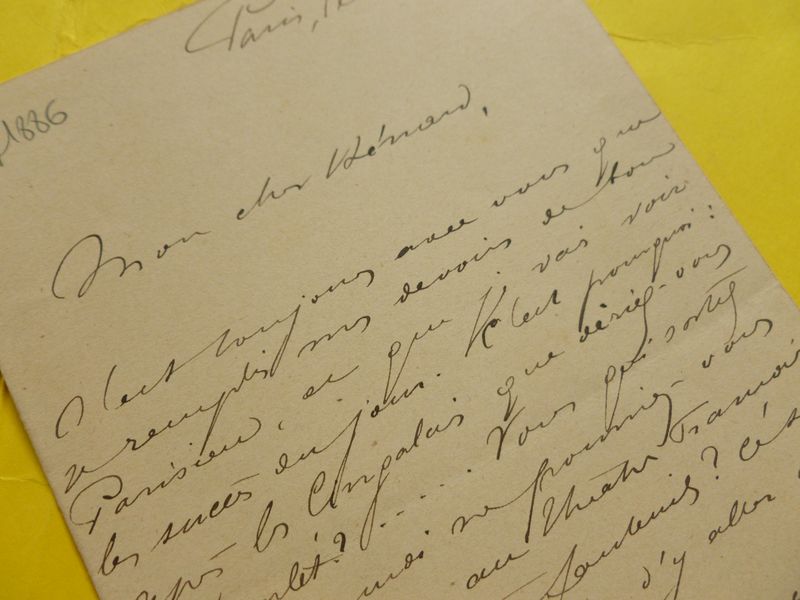 Paris,
1886
Mon cher Hénard,
C'est toujours avec vous que
je remplis mes devoirs de bon
Parisien, et que je vais voir
les succès du jour. C'est pourquoi:
après les Cingalais que diriez-vous
Vous qui sortez
moi ne pourriez-vous
au Théâtre Français
fauteuils?
d'y aller